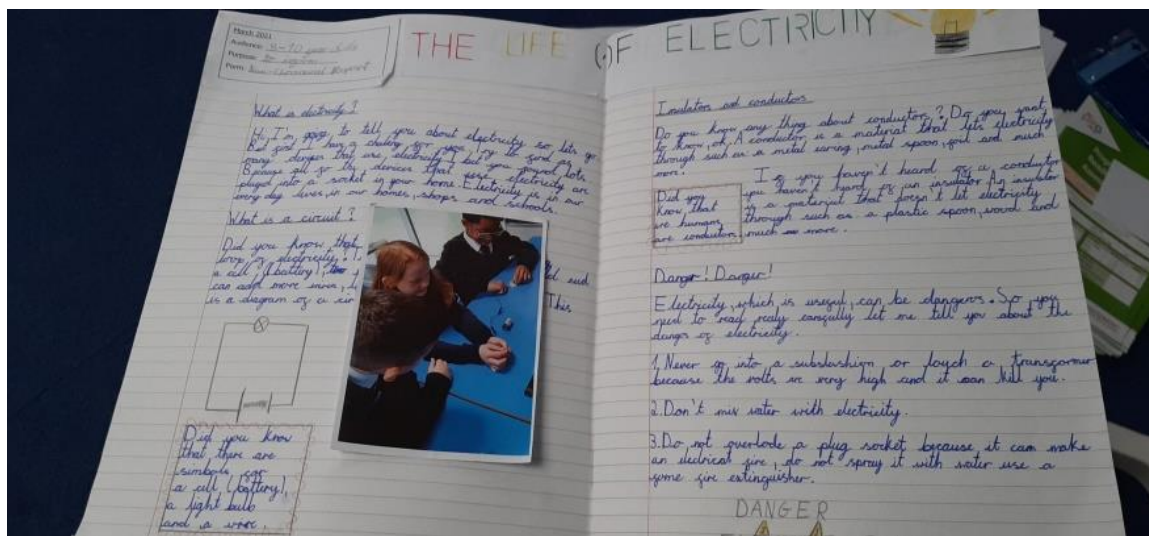 March 2021
Audience:
Purpose: To explain
Form: Non-Chronological Report
THE LIFE OF ELECTRICITY
What is electricity?
Hi, I'm going to tell you about electricity so lets go.
But first I have a challeng for you, try to find as
many danger that are electricity I bet you found lots
Because all of the devices that use electricity are
pluged into a socket in your home. Electricity is in our
every day lives, in our homes, shops and schools.
What is a circuit?
Did you know that
loop of electricity.
a cell, (battery),
can add more wires,
is a diagram of a cir
end
This
Did you know
that there are
simbols for
a cell (battery),
a light bulb
and a wire.
Insulators and conductors
Do you know any thing about conductors? Do you want
to know, ok. A conductor is a material that lets electricity
through such as a metal earing, metal spoon, foil and much
more.
If you haven't heard of a conductor
you haven't heard of an insulator An insulator
is a material that doesn't let electricity
through such as a plastic spoon, wood and
much more.
Did you
know that
we humans
are conductors
Danger! Danger!
Electricity, which is useful, can be dangerus. So you
need to read realy carefully let me tell you about the
dangs of electricity.
1, Never go into a substashion or touch a transformer
because the volts are very high and it can kill you.
2. Don't mix water with electricity.
3. Do not overlode a plug socket because it can make
an electrical fire, do not spray it with water use a
fome fire extinguisher.
DANGER